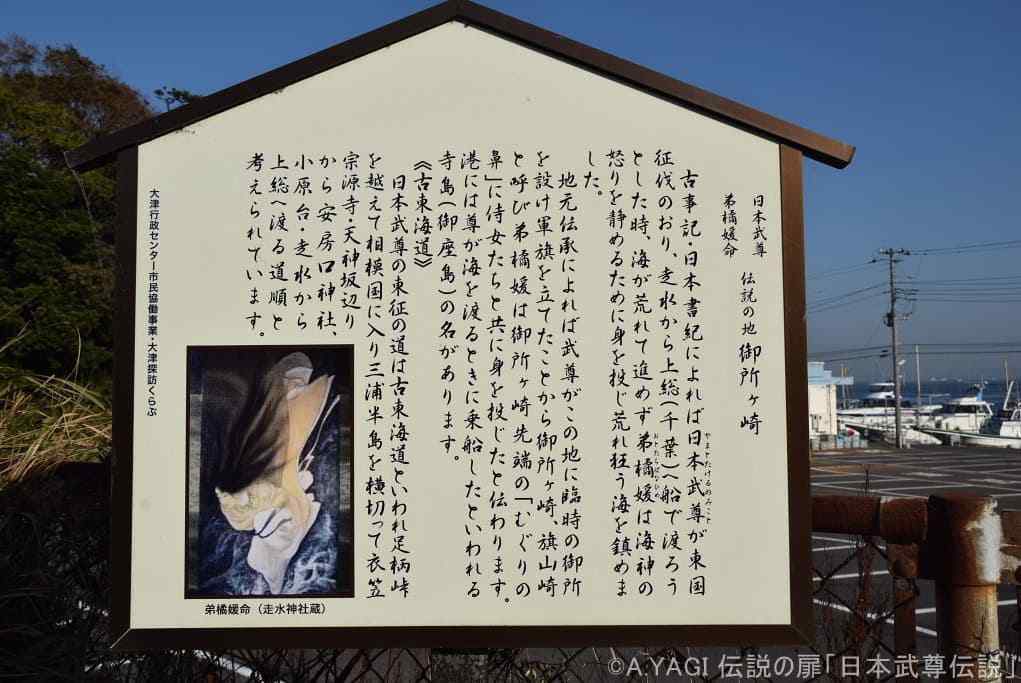 日本武尊
弟橘媛命
伝説の地 御所ヶ崎
古事記・日本書紀によれば日本武尊が東国
やまとたけるのみこと
征伐のおり、走水から上総(千葉)へ船で渡ろう
とした時、海が荒れて進めず弟橘媛は海神の
おとたちばなひめ
怒りを静めるために身を投じ荒れ狂う海を鎮めま
した。
地元伝承によれば武尊がこの地に臨時の御所
を設け軍旗を立てたことから御所ヶ崎、旗山崎
と呼び弟橘媛は御所ヶ崎先端の「むぐりの
鼻」に侍女たちと共に身を投じたと伝わります。
港には尊が海を渡るときに乗船したといわれる
寺島(御座島)の名があります。
《古東海道》
日本武尊の東征の道は古東海道といわれ足柄峠
を越えて相模国に入り三浦半島を横切って衣笠
宗源寺・天神坂辺り
から安房口神社、
小原台・走水から
上総へ渡る道順と
考えられています。
大津行政センター市民協働事業・大津探訪くらぶ
弟橘媛命(走水神社蔵)
©A.YAGI 伝説の扉「日本武尊伝説」